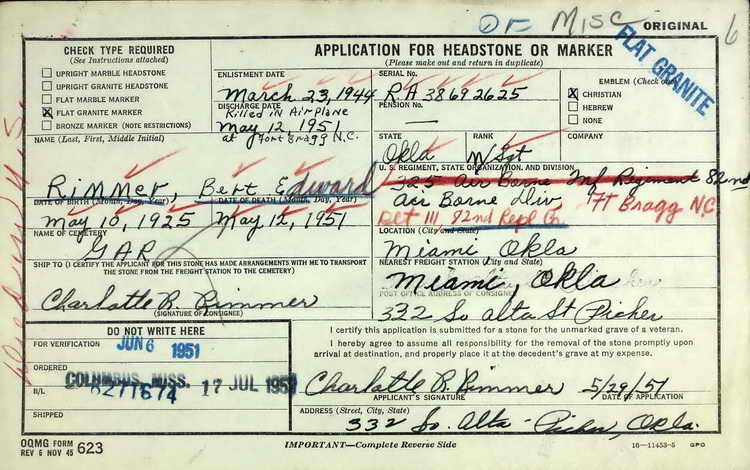 OF MISC
ORIGINAL
6
CHECK TYPE REQUIRED
(See Instructions attached)
UPRIGHT MARBLE HEADSTONE
UPRIGHT GRANITE HEADSTONE
FLAT MARBLE MARKER
X FLAT GRANITE MARKER
BRONZE MARKER (NOTE RESTRICTIONS)
APPLICATION FOR HEADSTONE OR MARKER
(Please make out and return in duplicate)
ENLISTMENT DATE
March 23, 1944
DISCHARGE DATE
Killed in Airplane
May 12, 1951
at Fort Bragg N.C.
SERIAL NO.
RA 38692625
PENSION NO.
—
EMBLEM (Check one)
X CHRISTIAN
HEBREW
NONE
FLAT GRANITE
NAME (Last, First, Middle Initial)
Rimmer, Bert Edward
STATE
Okla
RANK
M Sgt
COMPANY
U.S. REGIMENT, STATE ORGANIZATION, AND DIVISION
325 Air Borne Inf Regiment 82nd
Air Borne Div
Ft Bragg N.C.
Det 111 82nd Repl Co
DATE OF BIRTH (Month, Day, Year)
May 10, 1925
DATE OF DEATH (Month, Day, Year)
May 12, 1951
NAME OF CEMETERY
GAR
LOCATION (City and State)
Miami Okla
SHIP TO (I CERTIFY THE APPLICANT FOR THIS STONE HAS MADE ARRANGEMENTS WITH ME TO TRANSPORT
THE STONE FROM THE FREIGHT STATION TO THE CEMETERY)
Charlotte R. Rimmer
(SIGNATURE OF CONSIGNEE)
NEAREST FREIGHT STATION (City and State)
Miami, Okla
POST OFFICE ADDRESS OF CONSIGNEE
332 So Alta St Picher
DO NOT WRITE HERE
FOR VERIFICATION
JUN 6 1951
ORDERED
COLUMBUS, MISS. 17 JUL 1951
B/L
6271674
SHIPPED
I certify this application is submitted for a stone for the unmarked grave of a veteran.
I hereby agree to assume all responsibility for the removal of the stone promptly upon
arrival at destination, and properly place it at the decedent's grave at my expense.
Charlotte R. Rimmer 5/29/51
APPLICANT'S SIGNATURE
DATE OF APPLICATION
ADDRESS (Street, City, State)
332 So. Alta - Picher, Okla.
OQMG FORM
REV 6 NOV 45 623
IMPORTANT—Complete Reverse Side
16—11453-5 GPO